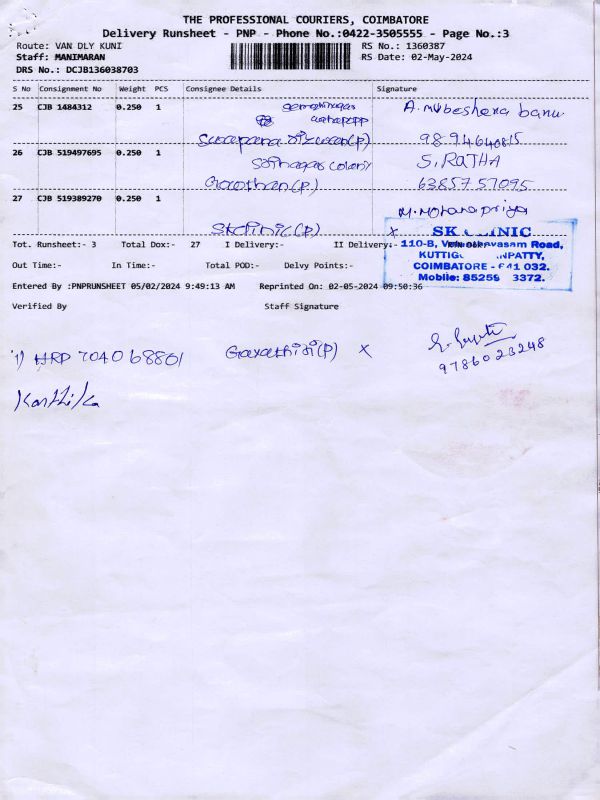 THE PROFESSIONAL COURIERS, COIMBATORE
Delivery Runsheet - PNP - Phone No.:0422-3505555 - Page No.:3
Route: VAN DLY KUNI
RS No.: 1360387
Staff: MANIMARAN
RS Date: 02-May-2024
DRS No.: DCJB136038703
S No Consignment No Weight PCS Consignee Details Signature
25 CJB 1484312 0.250 1
A. Mubeshera banu
98 94640815
26 CJB 519497695 0.250 1
colony
S. RATHA
Gowthan(P)
63857 57095
27 CJB 519389270 0.250 1
M. Mohanapriya
Skclinic(P) x
SK CLINIC
Tot. Runsheet:- 3 Total Dox:- 27 I Delivery:- II Delivery:-
110-B, Road,
KUTTIG
Out Time:- In Time:- Total POD:- Delvy Points:-
COIMBATORE - 641 032.
Mobile: 85259 3372.
Entered By :PNPRUNSHEET 05/02/2024 9:49:13 AM Reprinted On: 02-05-2024 09:50:36
Verified By Staff Signature
1) HRP 704068801 Gayathiri(P) x
9786023248
Karthika